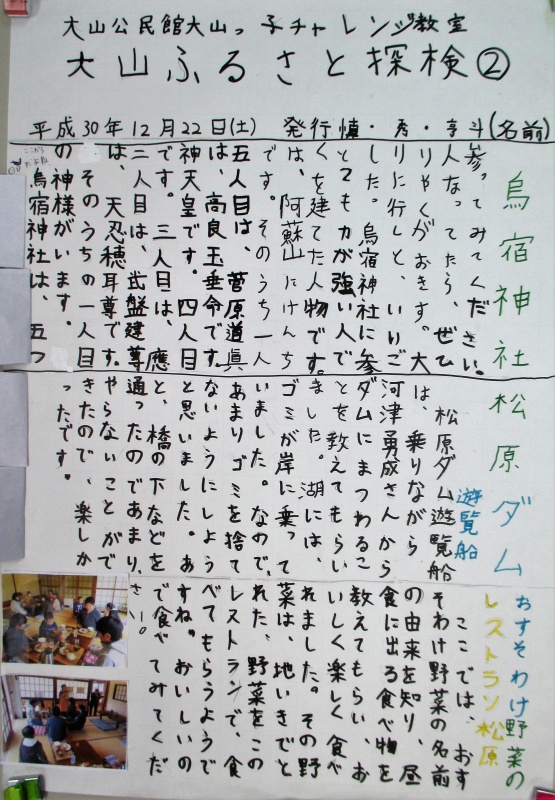 大山公民館大山っ子チャレンジ教室
大山ふるさと探検②
平成30年12月22日(土) 発行慎・秀・亨斗(名前)
烏宿神社
ここから
烏宿神社は、五つ
の神様がいます。
そのうちの一人目
は、天忍穂耳尊です。
二人目は、武盤建尊
です。三人目は、應
神天皇です。四人目
は、高良玉垂命です。
五人目は、菅原道真
です。そのうち一人
は、阿蘇山にけんち
くを建てた人物です。
とても力が強い人で
した。烏宿神社に参
りに行くと、いいご
りやくがおきます。大
人なってたら、ぜひ
参ってみてください。
松原ダム
遊覧船
松原ダム遊覧船
は、乗りながら
河津勇成さんから
ダムにまつわるこ
とを教えてもらい
ました。湖には、
ゴミが岸に乗って
いました。なので、
あまりゴミを捨て
ないようにしよう
と思いました。あ
と、橋の下などを
通ったのであまり、
やらないことがで
きたので、楽しか
ったです。
おすそわけ野菜の
レストラン松原
ここでは、おす
そわけ野菜の名前
の由来を知り、昼
食に出る食べ物を
教えてもらい、お
いしく楽しく食べ
れました。その野
菜は、地いきでと
れた、野菜をこの
レストランで、食
べてもらうようで
すね。おいしいの
で食べてみてくだ
さい。